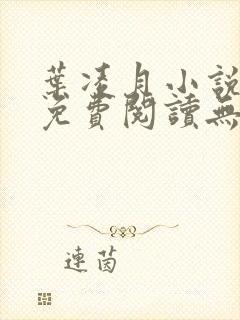 葉凌月小說
免費閱讀無
連茵